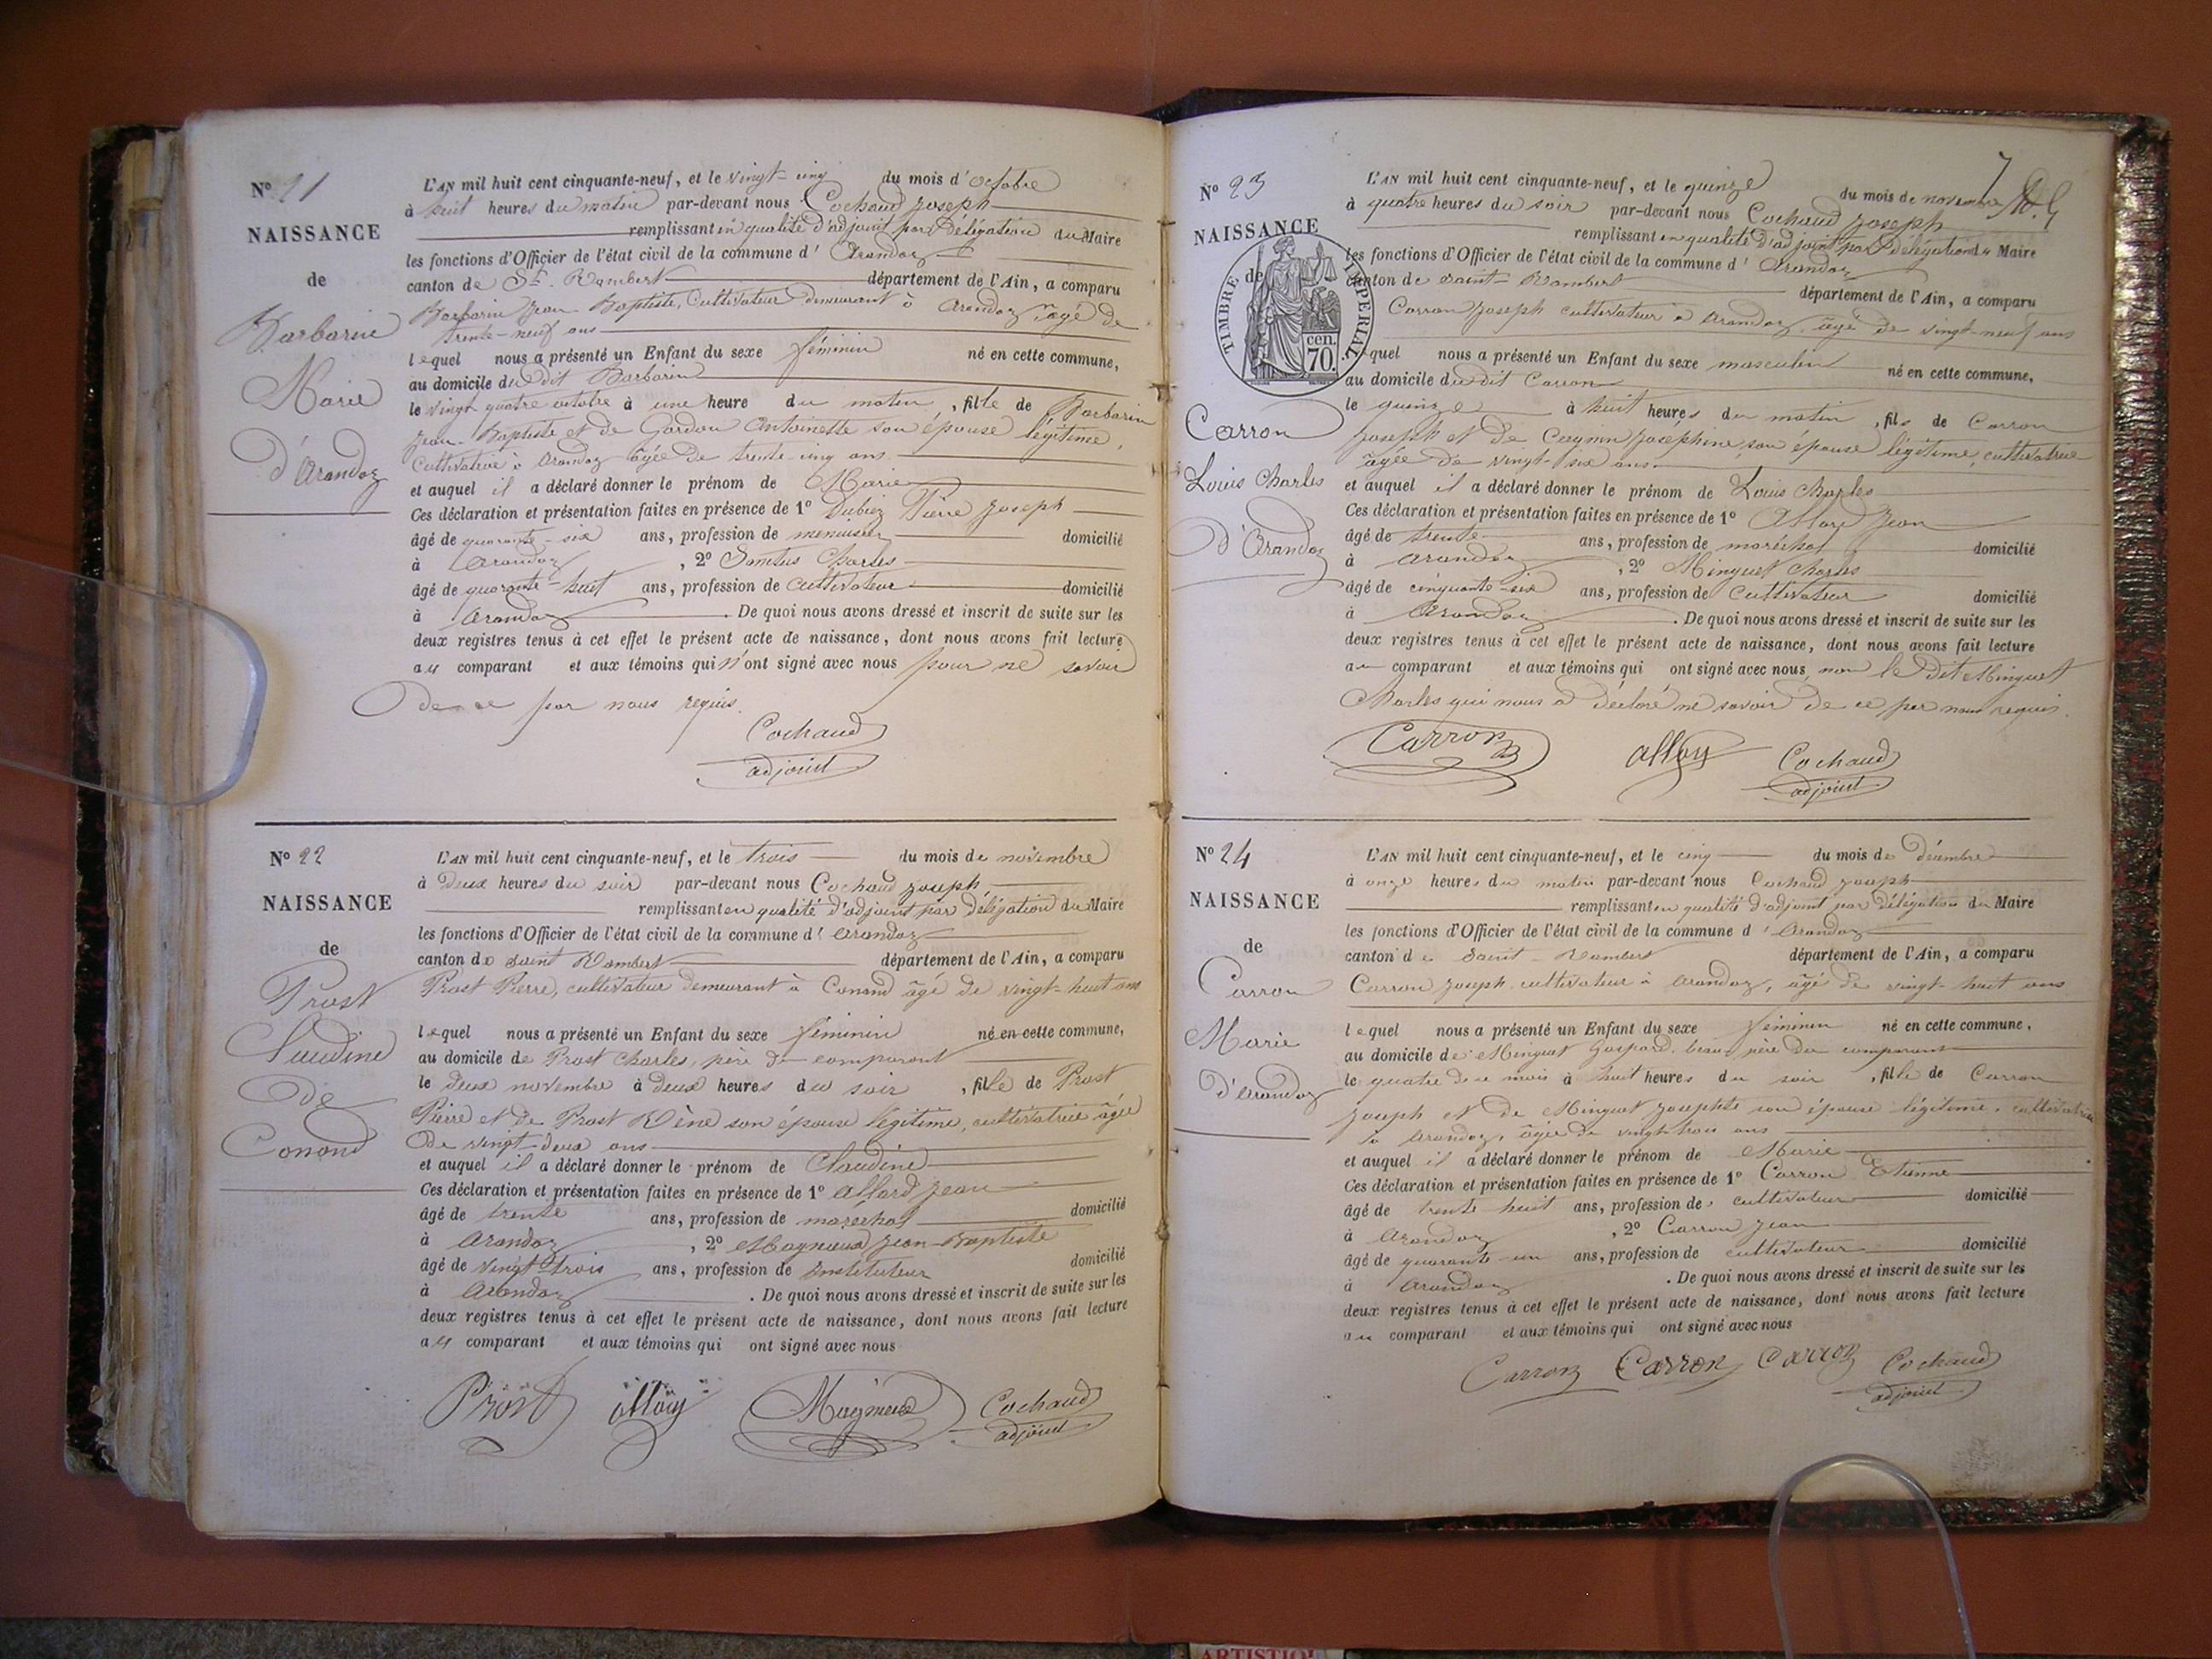 N° 21
NAISSANCE
de
Barbarin
Marie
d'Arandaz
L'AN mil huit cent cinquante-neuf, et le vingt-cinq du mois d'octobre
à huit heures du matin par-devant nous Cochaud Joseph
remplissant en qualité d'adjoint par délégation du Maire
les fonctions d'Officier de l'état civil de la commune d' Arandaz
canton de St. Rambert département de l'Ain, a comparu
Barbarin Jean-Baptiste, cultivateur demeurant à Arandaz âgé de
trente-neuf ans
lequel nous a présenté un Enfant du sexe féminin né en cette commune,
au domicile du dit Barbarin
le vingt quatre octobre à une heure du matin, fille de Barbarin
Jean-Baptiste et de Gardon Antoinette son épouse légitime,
cultivatrice à Arandaz âgée de trente-cinq ans
et auquel il a déclaré donner le prénom de Marie
Ces déclaration et présentation faites en présence de 1° Dubiez Pierre Joseph
âgé de quarante-six ans, profession de menuisier domicilié
à Arandaz, 2° Santus Charles
âgé de quarante-huit ans, profession de cultivateur domicilié
à Arandaz. De quoi nous avons dressé et inscrit de suite sur les
deux registres tenus à cet effet le présent acte de naissance, dont nous avons fait lecture
au comparant et aux témoins qui n'ont signé avec nous pour ne savoir
de ce par nous requis.
Cochaud
adjoint
N° 22
NAISSANCE
de
Prost
Claudine
de
Conand
L'AN mil huit cent cinquante-neuf, et le trois du mois de novembre
à deux heures du soir par-devant nous Cochaud Joseph,
remplissant en qualité d'adjoint par délégation du Maire
les fonctions d'Officier de l'état civil de la commune d' Arandaz
canton de Saint Rambert département de l'Ain, a comparu
Prost Pierre, cultivateur demeurant à Conand âgé de vingt-huit ans
lequel nous a présenté un Enfant du sexe féminin né en cette commune,
au domicile de Prost Charles, père du comparant
le deux novembre à deux heures du soir, fille de Prost
Pierre et de Prost Rène son épouse légitime, cultivatrice âgée
de vingt-deux ans
et auquel il a déclaré donner le prénom de Claudine
Ces déclaration et présentation faites en présence de 1° Allard Jean
âgé de trente ans, profession de maréchal domicilié
à Arandaz, 2° Magnieux Jean-Baptiste
âgé de vingt-trois ans, profession de Instituteur domicilié
à Arandaz. De quoi nous avons dressé et inscrit de suite sur les
deux registres tenus à cet effet le présent acte de naissance, dont nous avons fait lecture
au comparant et aux témoins qui ont signé avec nous
Prost Cochaud
adjoint
7
N° 23
NAISSANCE
de
TIMBRE IMPERIAL
cen.
70.
Carron
Louis Charles
d'Arandaz
L'AN mil huit cent cinquante-neuf, et le quinze du mois de novembre
à quatre heures du soir par-devant nous Cochaud Joseph
remplissant en qualité d'adjoint par délégation du Maire
les fonctions d'Officier de l'état civil de la commune d' Arandaz
canton de Saint-Rambert département de l'Ain, a comparu
Carron Joseph cultivateur à Arandaz, âgé de vingt-neuf ans
lequel nous a présenté un Enfant du sexe masculin né en cette commune,
au domicile du dit Carron
le quinze à huit heures du matin, fils de Carron
Joseph et de Joséphine son épouse légitime, cultivatrice
âgée de vingt-six ans
et auquel il a déclaré donner le prénom de Louis Charles
Ces déclaration et présentation faites en présence de 1° Allard Jean
âgé de trente ans, profession de maréchal domicilié
à Arandaz, 2° Minguet Charles
âgé de cinquante-six ans, profession de cultivateur domicilié
à Arandaz. De quoi nous avons dressé et inscrit de suite sur les
deux registres tenus à cet effet le présent acte de naissance, dont nous avons fait lecture
au comparant et aux témoins qui ont signé avec nous, non le dit Minguet
Charles qui nous a déclaré ne savoir de ce par nous requis.
Carron Cochaud
adjoint
N° 24
NAISSANCE
de
Carron
Marie
d'Arandaz
L'AN mil huit cent cinquante-neuf, et le cinq du mois de Décembre
à onze heures du matin par-devant nous Cochaud Joseph
remplissant en qualité d'adjoint par délégation du Maire
les fonctions d'Officier de l'état civil de la commune d' Arandaz
canton de Saint-Rambert département de l'Ain, a comparu
Carron Joseph cultivateur à Arandaz, âgé de vingt-huit ans
lequel nous a présenté un Enfant du sexe féminin né en cette commune,
au domicile de Minguet Gaspard, beau-père du comparant
le quatre de ce mois à huit heures du soir, fille de Carron
Joseph et de Minguet Josephte son épouse légitime, cultivatrice
à Arandaz, âgée de vingt-trois ans
et auquel il a déclaré donner le prénom de Marie
Ces déclaration et présentation faites en présence de 1° Carron Etienne
âgé de trente-huit ans, profession de cultivateur domicilié
à Arandaz, 2° Carron Jean
âgé de quarante-un ans, profession de cultivateur domicilié
à Arandaz. De quoi nous avons dressé et inscrit de suite sur les
deux registres tenus à cet effet le présent acte de naissance, dont nous avons fait lecture
au comparant et aux témoins qui ont signé avec nous
Carron Carron Carron Cochaud
adjoint